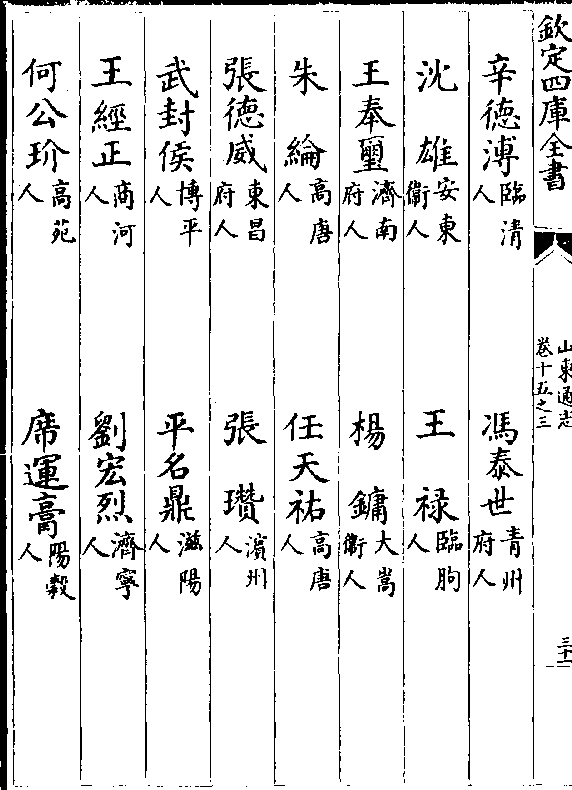 欽定四庫全書
山東通志
卷十五之三
三十一
辛德溥臨清人 馮泰世青州府人
沈雄安東衛人 王祿臨朐人
王奉璽濟南府人 楊鏞大嵩衛人
朱綸高唐人 任天祐高唐人
張德威東昌府人 張瓚濱州人
武封侯博平人 平名鼎滋陽人
王經正商河人 劉宏烈濟寧人
何公玠高苑人 席運膏陽穀人